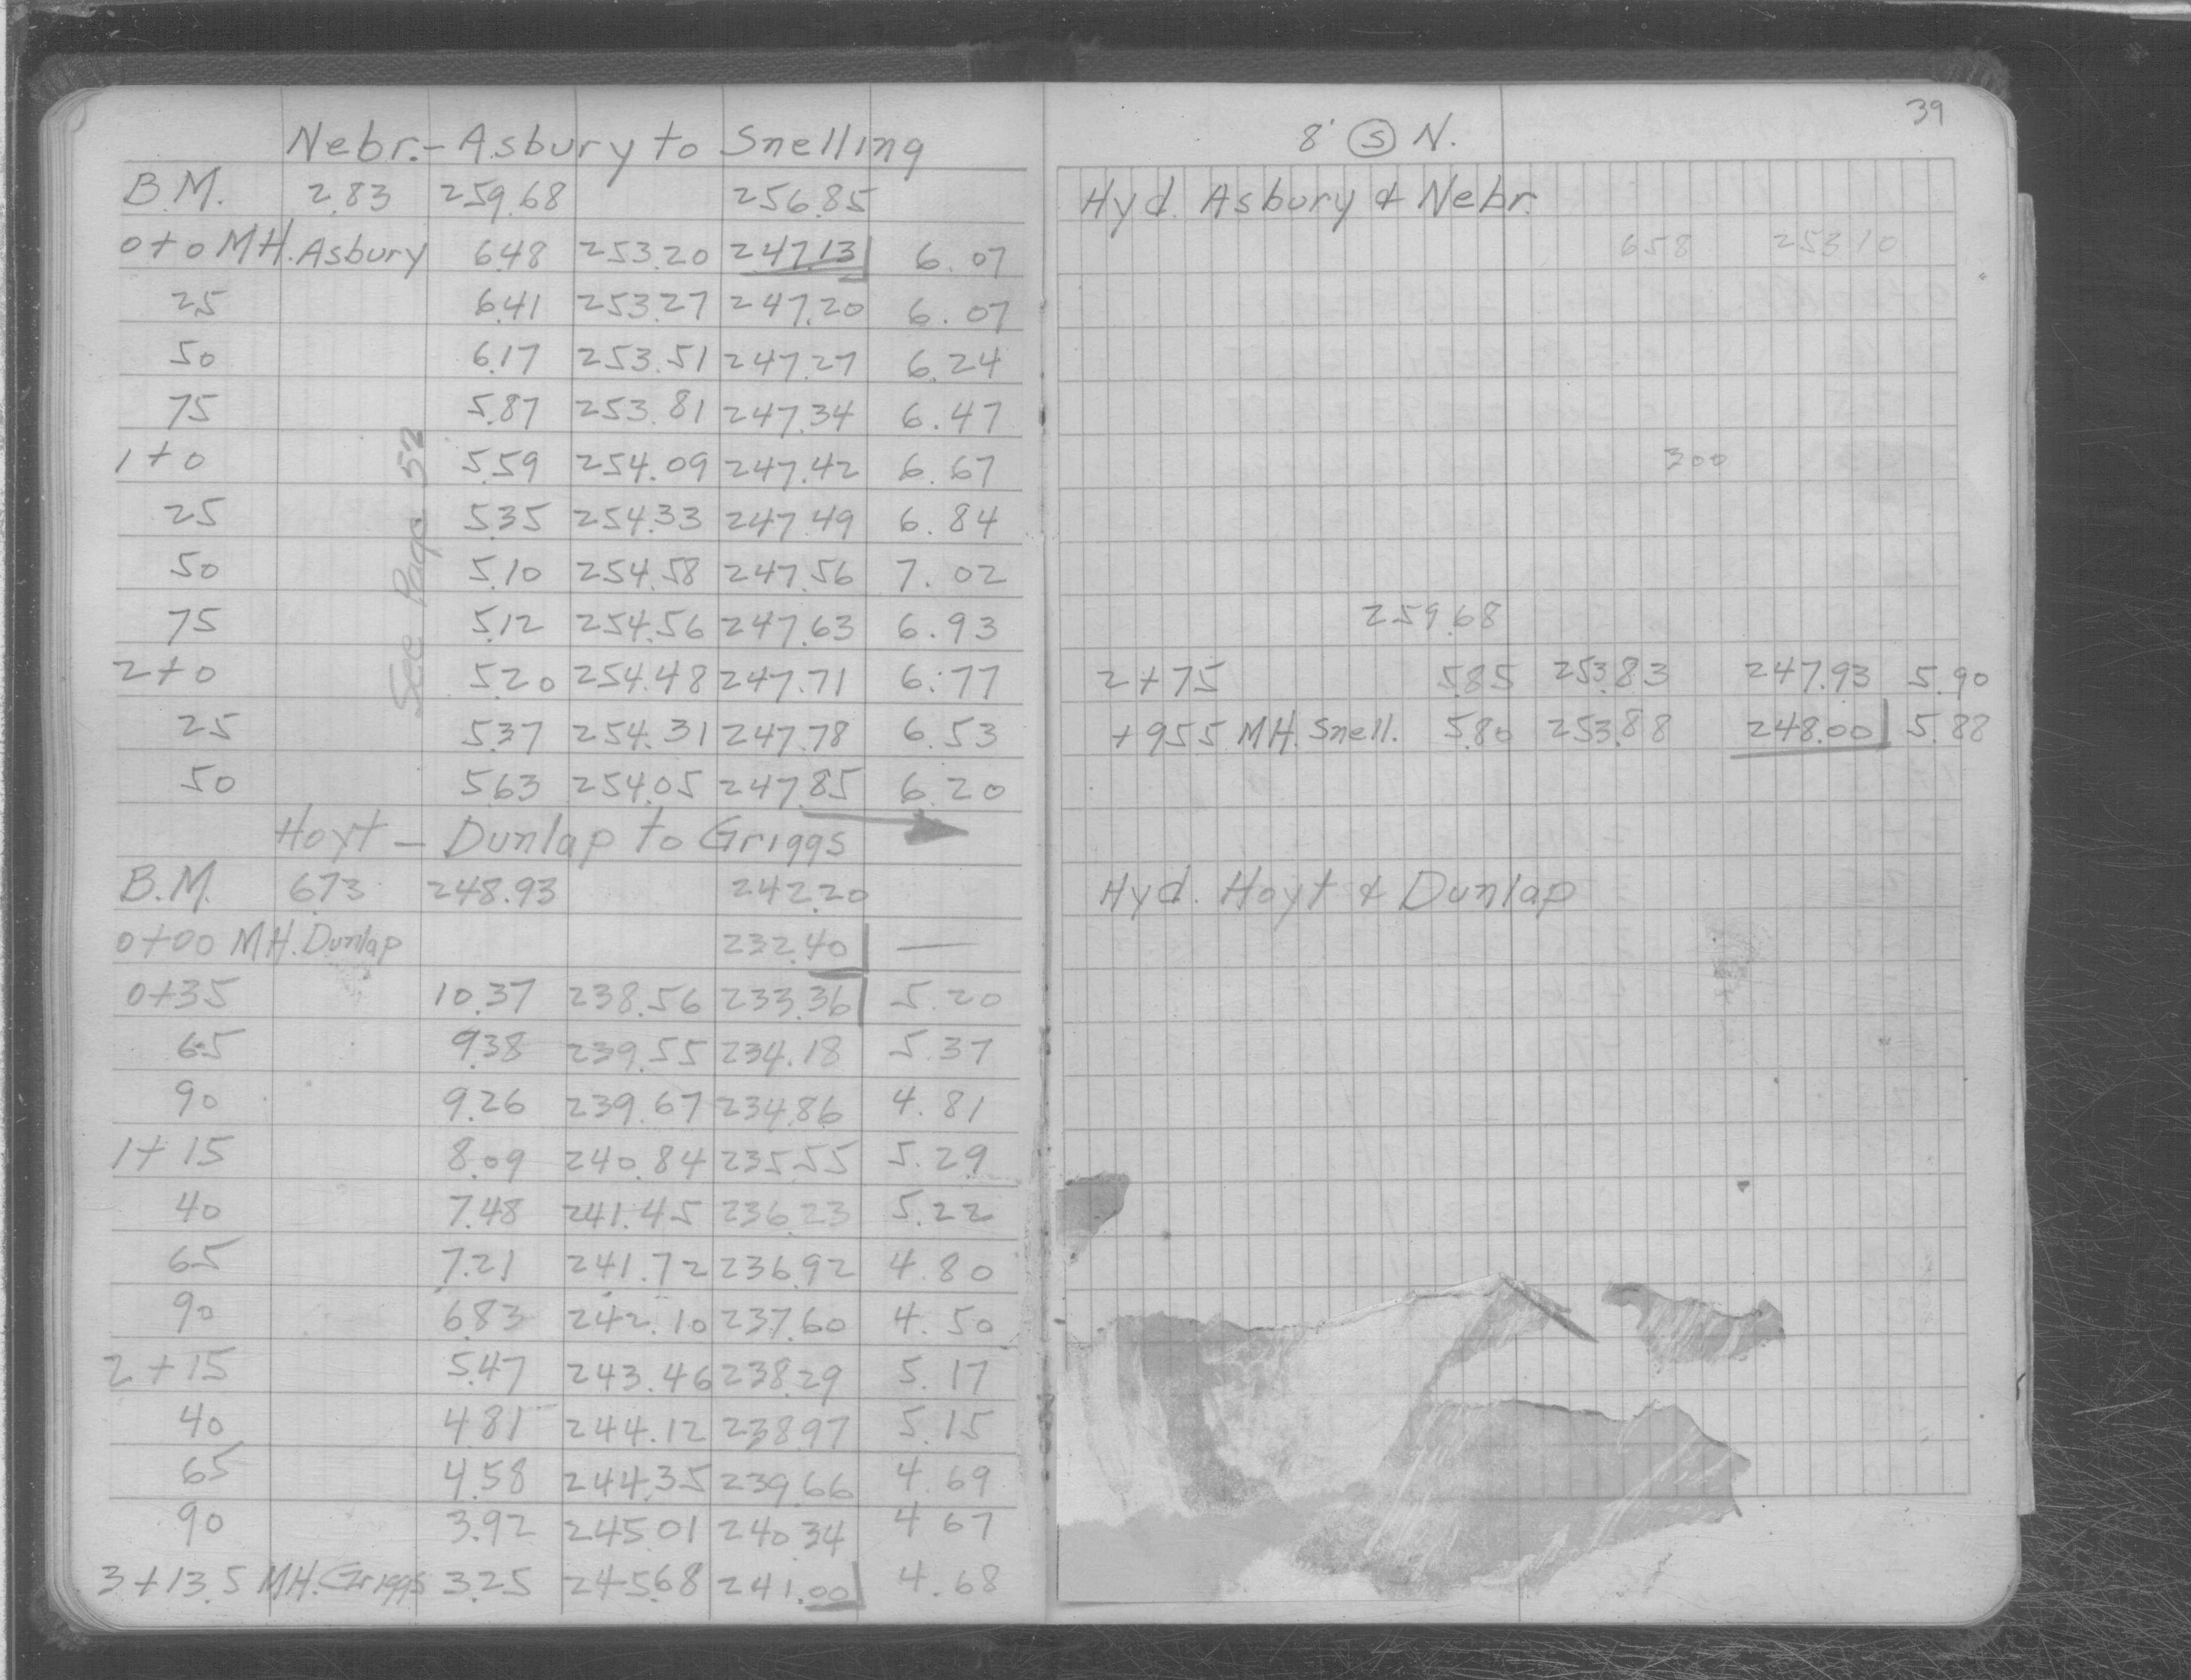 Nebr. - Asbury to Snelling
B.M. 2.83 259.68 256.85
0+0 MH. Asbury 6.48 253.20 247.13 6.07
25 6.41 253.27 247.20 6.07
50 6.17 253.51 247.27 6.24
75 5.87 253.81 247.34 6.47
1+0 5.59 254.09 247.42 6.67
25 5.35 254.33 247.49 6.84
50 5.10 254.58 247.56 7.02
75 5.12 254.56 247.63 6.93
2+0 5.20 254.48 247.71 6.77
25 5.37 254.31 247.78 6.53
50 5.63 254.05 247.85 6.20
See Page 52
Hoyt - Dunlap to Griggs
B.M. 6.73 248.93 242.20
0+00 MH. Dunlap 232.40 —
0+35 10.37 238.56 233.36 5.20
65 9.38 239.55 234.18 5.37
90 9.26 239.67 234.86 4.81
1+15 8.09 240.84 235.55 5.29
40 7.48 241.45 236.23 5.22
65 7.21 241.72 236.92 4.80
90 6.83 242.10 237.60 4.50
2+15 5.47 243.46 238.29 5.17
40 4.81 244.12 238.97 5.15
65 4.58 244.35 239.66 4.69
90 3.92 245.01 240.34 4.67
3+13.5 MH. Griggs 3.25 245.68 241.00 4.68
39
8" Ⓢ N.
Hyd. Asbury & Nebr.
658 253.10
300
259.68
2+75 5.85 253.83 247.93 5.90
+95.5 MH. Snell. 5.80 253.88 248.00 5.88
Hyd. Hoyt & Dunlap